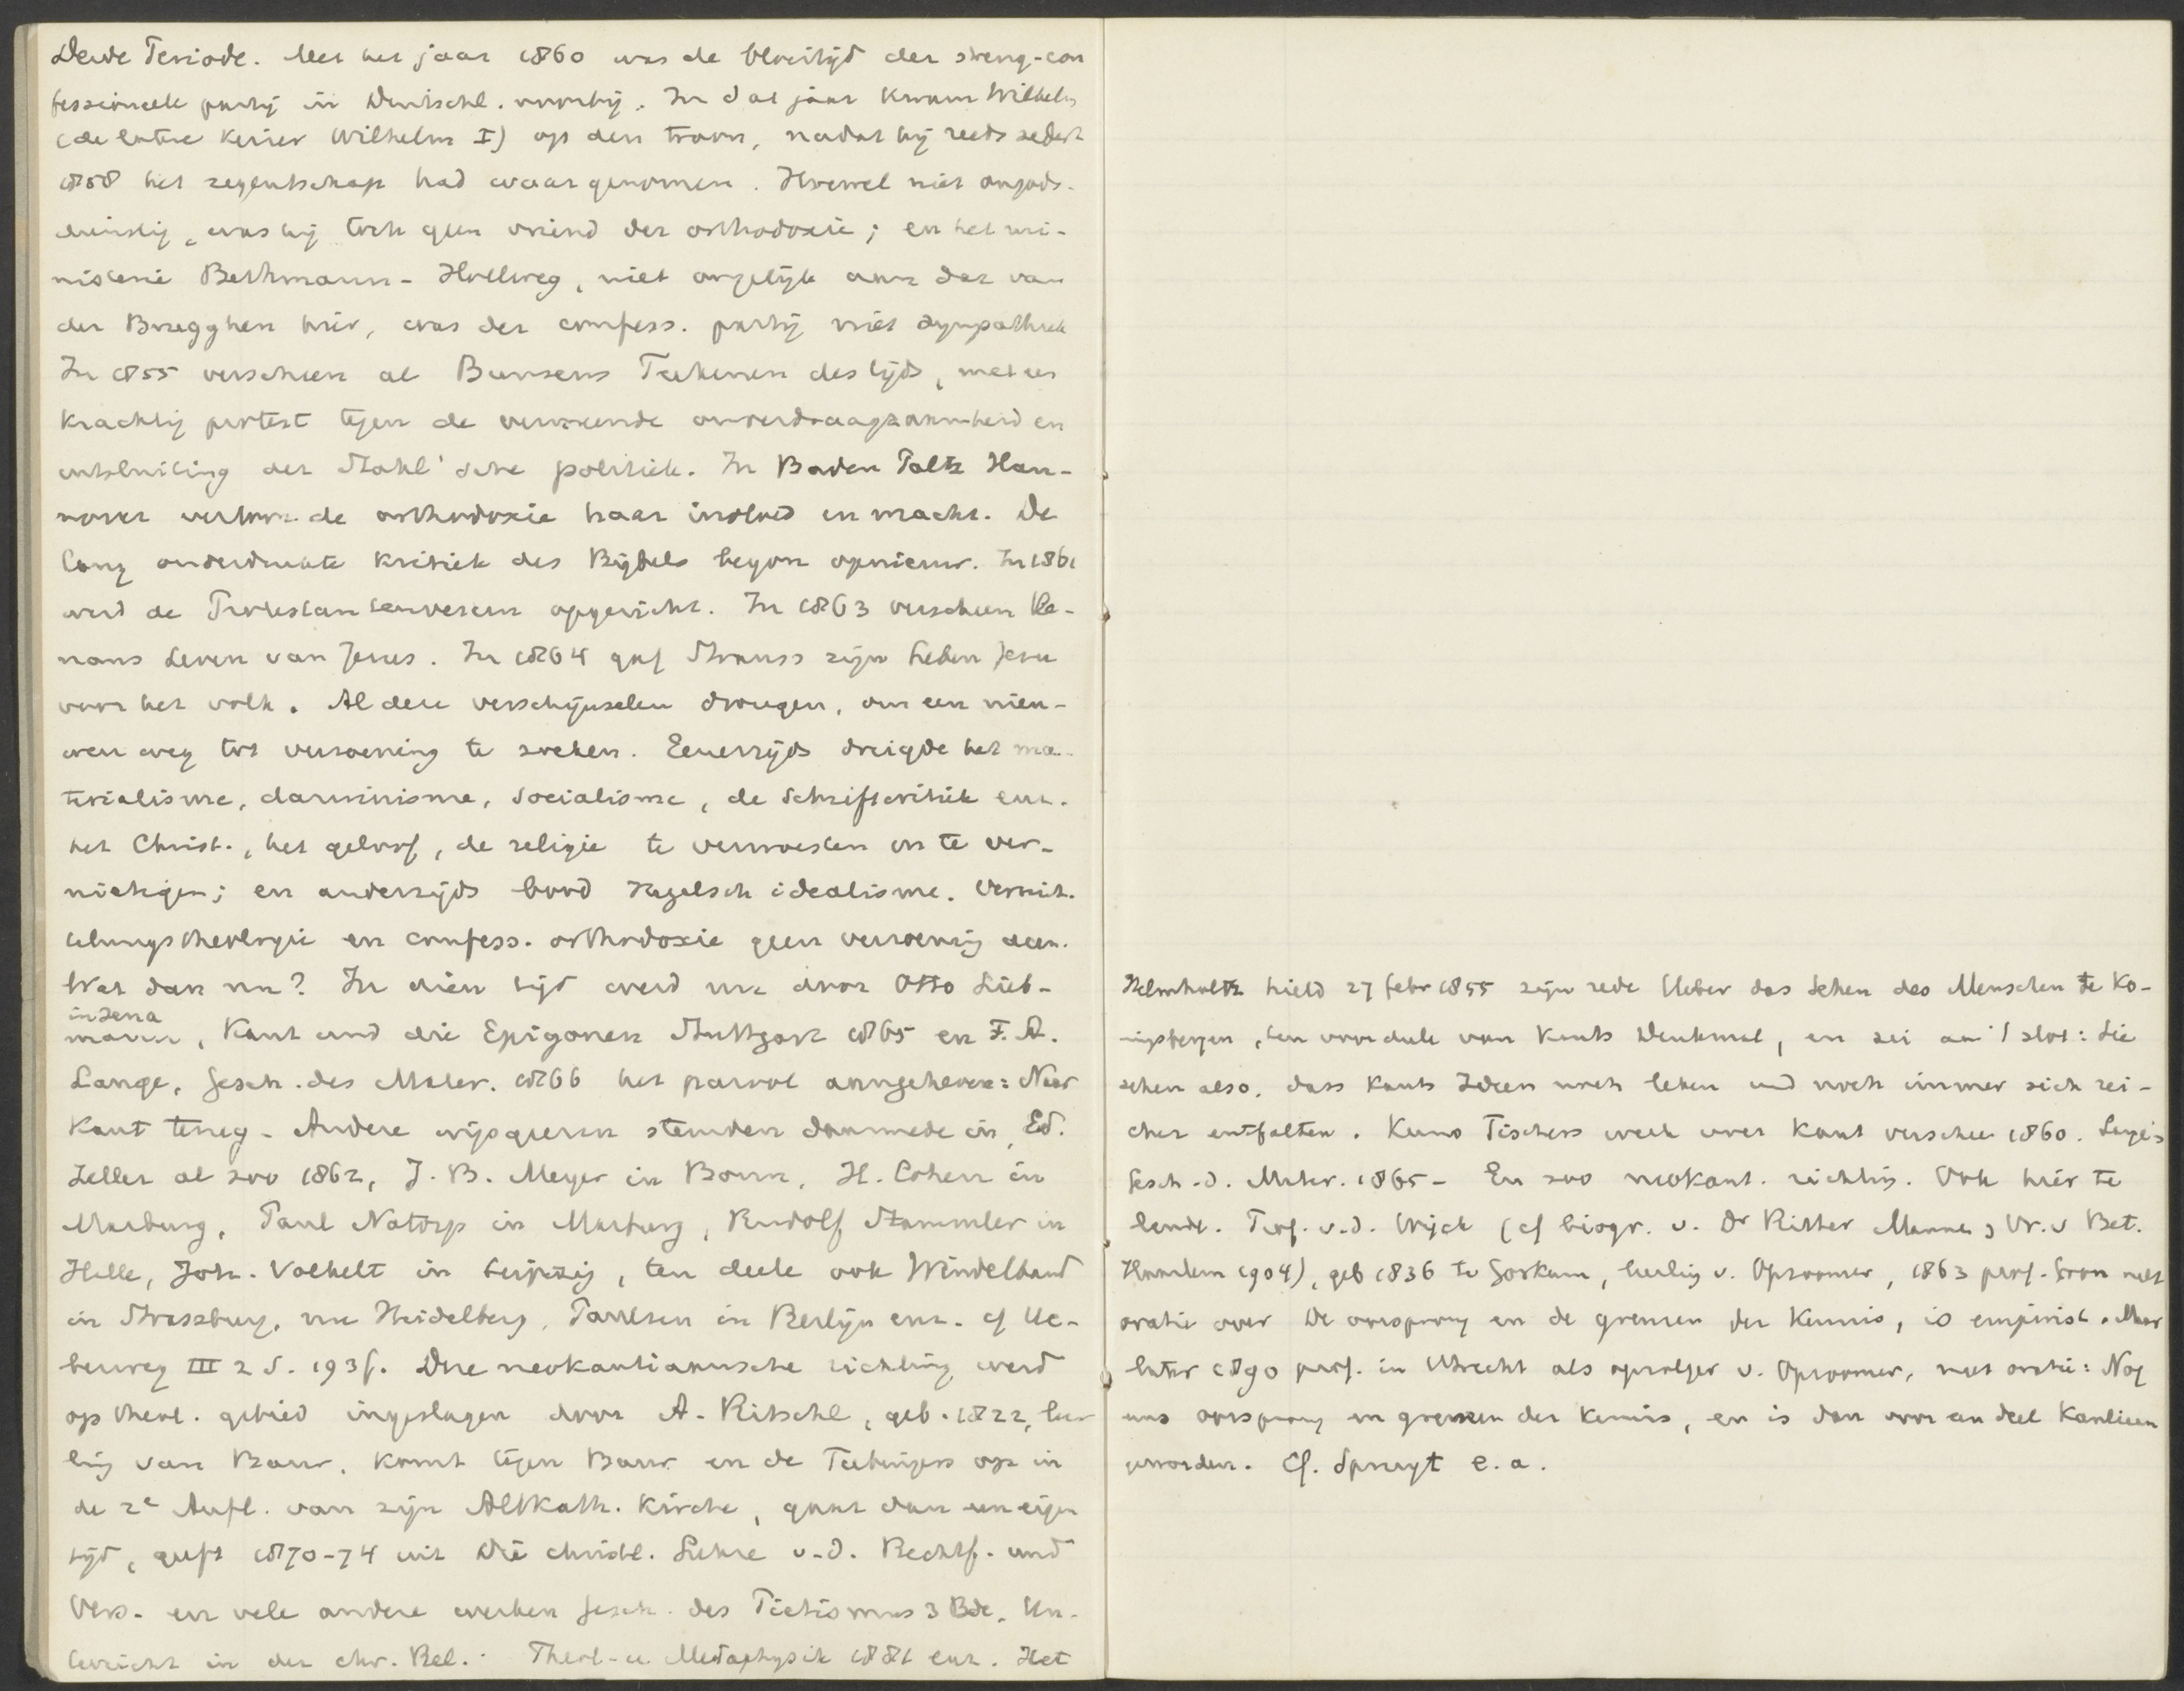 Derde Periode. Met het jaar 1860 was de bloeitijd der streng-con
fessioneele partij in Deutschl. voorbij. In dat jaar kwam Wilhelm
(de latere keizer Wilhelm I) op den troon, nadat hij reeds sedert
1858 het regentschap had waargenomen. Hoewel niet ongods-
dienstig, was hij toch geen vriend der orthodoxie; en het mi-
nisterie Bethmann-Hollweg, niet ongelijk aan dat van
der Brugghen hier, was der confess. partij niet sympathiek
In 1855 verscheen al Bunsens Teekenen des tijds, met een
krachtig protest tegen de verwoede onverdraagzaamheid en
uitsluiting der Stahl'sche politiek. In Baden Paltz Han-
nover verloor de orthodoxie haar invloed en macht. De
lang onderdrukte kritiek des Bijbels begon opnieuw. In 1861
werd de Protestantenverein opgericht. In 1863 verscheen Re-
nans Leven van Jezus. In 1864 gaf Strauss zijn Leben Jesu
voor het volk. Al deze verschijnselen drongen, om een nieu-
wen weg tot verzoening te zoeken. Eenerzijds dreigde het ma-
terialisme, darwinisme, socialisme, de Schriftcritiek enz.
het Christ., het geloof, de religie te verwoesten en te ver-
nietigen; en anderzijds bood Hegelsch idealisme. Vermit-
telungstheologie en confess. orthodoxie geen verzoening aan.
Wat dan nu? In dien tijd werd nu door Otto Lieb-
in Jena
mann, Kant und die Epigonen Stuttgart 1865 en F. A.
Lange, Gesch. des Mater. 1866 het parool aangeheven: Naar
Kant terug - Andere wijsgeeren stemden daarmede in, Ed.
Zeller al zoo 1862, J. B. Meyer in Bonn, H. Cohen in
Marburg, Paul Natorp in Marburg, Rudolf Stammler in
Halle, Joh. Volkelt in Leipzig, ten deele ook Windelband
in Straszburg, nu Heidelberg, Paulsen in Berlijn enz. cf Ue-
berweg III 2 S. 193f. Deze neokantiaansche richting werd
op theol. gebied ingeslagen door A. Ritschl, geb. 1822, leer
ling van Baur, komt tegen Baur en de Tubingers op in
de 2e Aufl. van zijn Altkath. Kirche, gaat dan een eigen
tijd, geeft 1870-74 uit Die christl. Lehre v.d. Rechtf. und
Vers. en vele andere werken Gesch. des Pietismus 3 Bde, Un-
terricht in der chr. Rel. Theol. u Metaphysik 1881 enz. Het
Helmholtz hield 27 febr 1855 zijn rede Ueber das Sehen des Menschen te Ko-
nigsbergen, ten voordeele van Kants Denkmal, en zei aan 't slot: Sie
sehen also, dass Kants Ideen noch leben und noch immer sich rei-
cher entfalten. Kuno Fischers werk over Kant verscheen 1860. Lange's
Gesch. d. Mater. 1865 - En zoo neokant. richting. Ook hier te
lande. Prof. v.d. Wijck (cf biogr. v. Dr Ritter Mannen v. Bet.
Haarlem 1904), geb 1836 te Gorkum, leerling v. Opzoomer, 1863 prof. Gron met
oratie over De oorsprong en de grenzen der kennis, is empirist. Maar
later 1890 prof. in Utrecht als opvolger v. Opzoomer, met oratie: Nog
eens oorsprong en grenzen der kennis, en is dan voor een deel Kantiaan
geworden. Cf. Spruyt e.a.